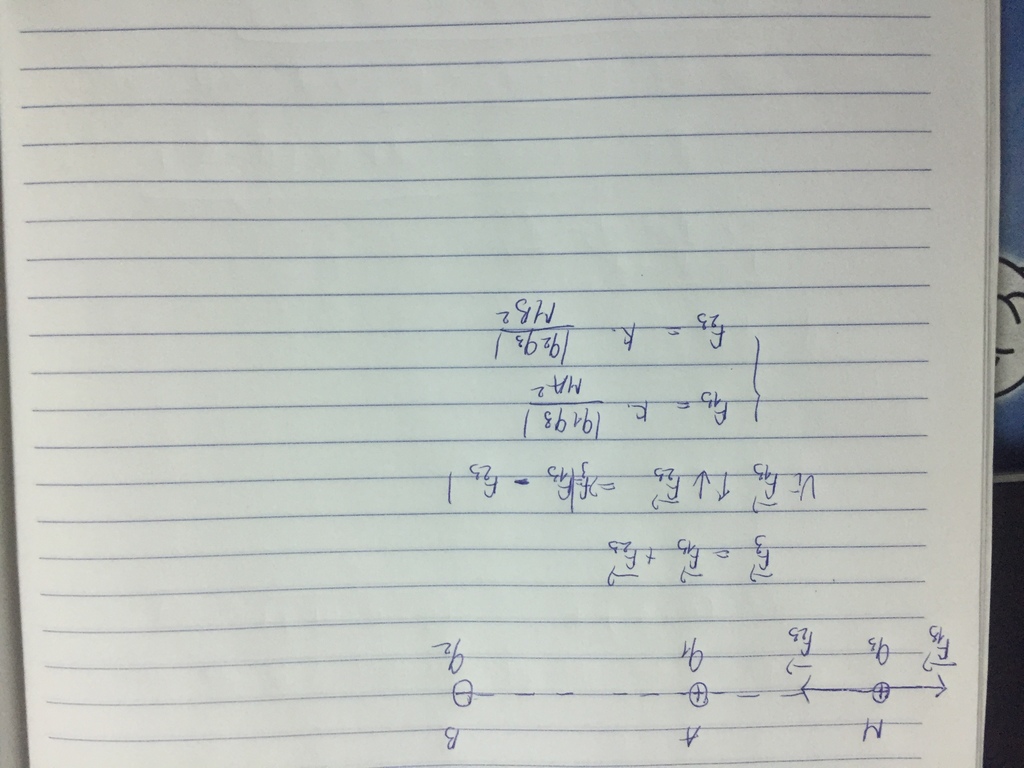 M A B
⊕ ⊕ ⊖
F₁₃→ q₃ F₂₃→ q₁ q₂
F₃→ = F₁₃→ + F₂₃→
Vì F₁₃→ ↑↓ F₂₃→ => F₃ = |F₁₃ - F₂₃|
{ F₁₃ = k. |q₁q₃| / MA²
F₂₃ = k. |q₂q₃| / MB²